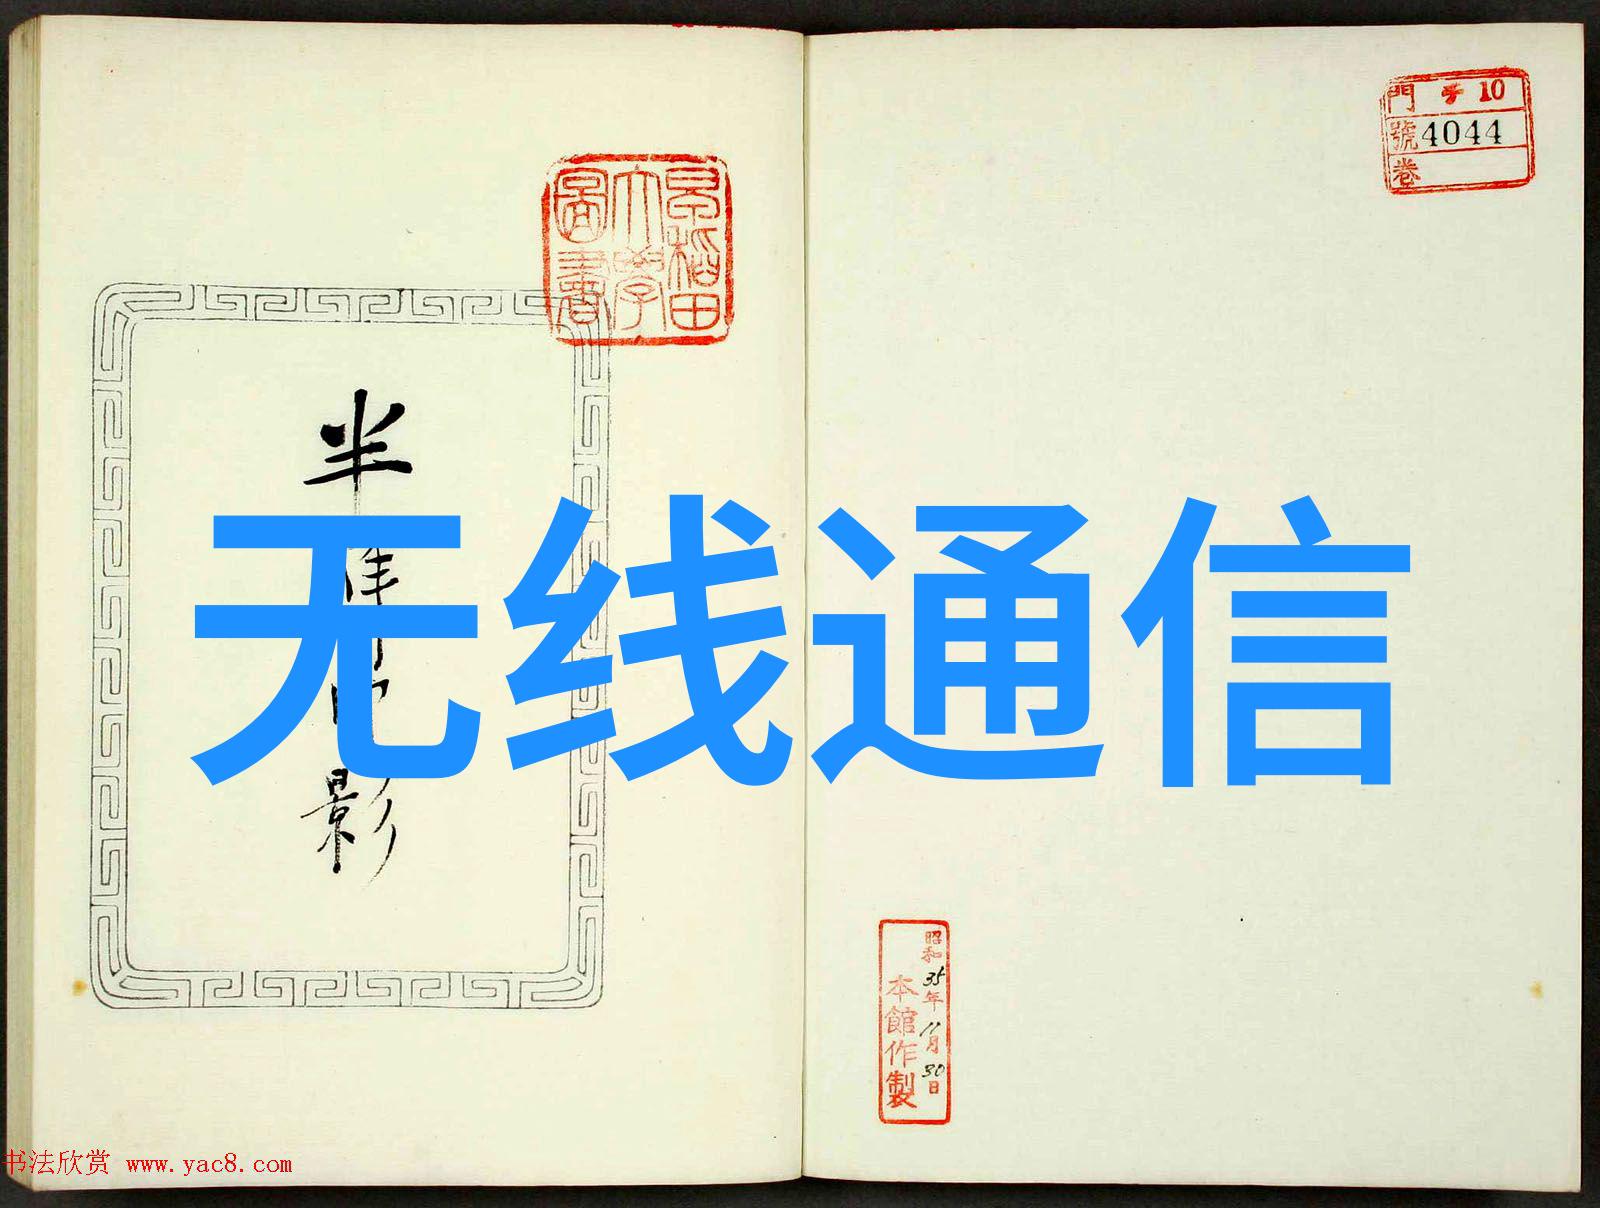 門 チ 10
號 4044
卷
早稲田
大學
圖書
半
影
无线通信
昭和35年11月30日
本館作製
书法欣赏 www.yac8.com